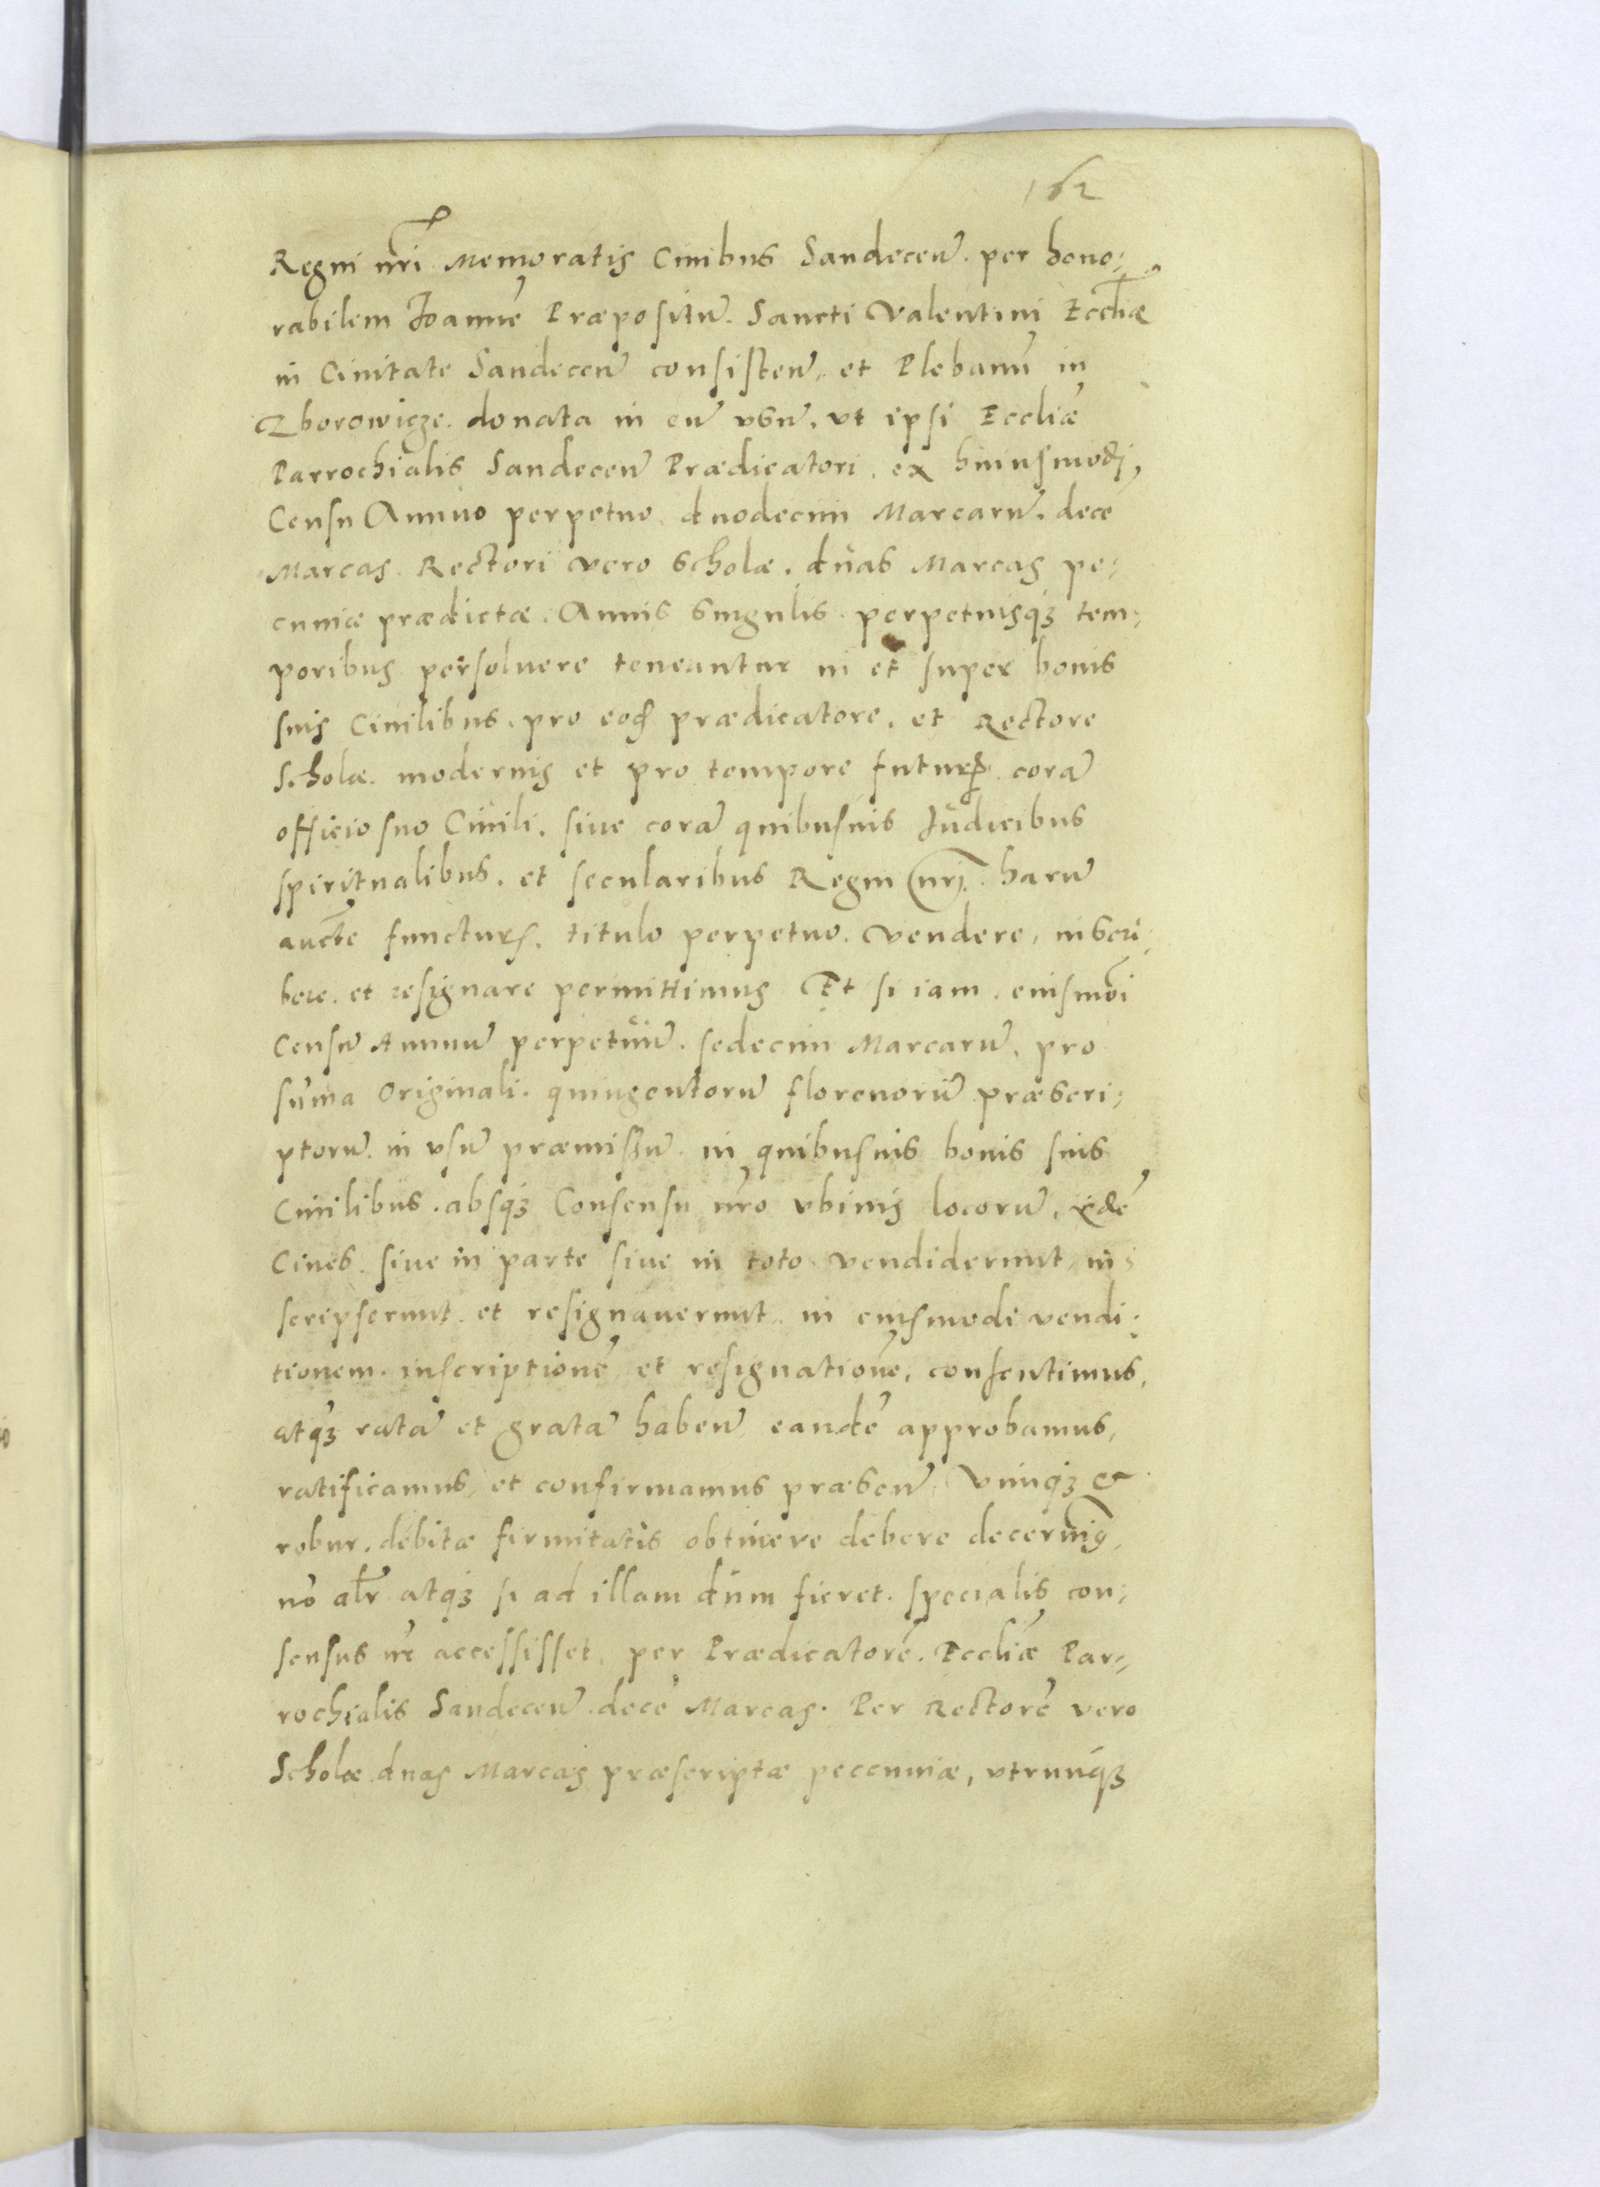 162
Regni nrĩ Memoratis Ciuibus Sandeceñ. per hono:
rabilem Joannẽ Præpositũ. Sancti Valentini Eccliæ
in Ciuitate Sandeceñ consisteñ. et Plebanũ in
Zborowicze. donata in eũ vsũ. vt ipsi Eccliæ
Parrochialis Sandeceñ Prædicatori. ex huiusmodj
Censu Annuo perpetuo. duodecim Marcarũ. decẽ
Marcas. Rectori vero scholæ. duas Marcas pe:
cuniæ prædictæ. Annis singulis. perpetuisqꝫ tem:
poribus persoluere teneantur in et super bonis
suis Ciuilibus. pro eod prædicatore. et Rectore
Scholæ. modernis et pro tempore futurꝭ. corã
officio suo Ciuili. siue corã quibusuis Judicibus
spiritualibus. et secularibus Regni nrj. harũ
aucte functurꝭ. titulo perpetuo. vendere, inscri:
bere. et resignare permittimus Et si iam. eiusmõi
Censũ Annuũ perpetuũ. sedecim Marcarũ. pro
sũma Originali. quingentorũ florenorũ præscri:
ptorũ. in vsũ præmissũ. in quibusuis bonis suis
Ciuilibus. absqꝫ Consensu nrõ vbiuis locorũ. ijdẽ
Ciues. siue in parte siue in toto vendiderunt, in:
scripserunt. et resignauerunt. in eiusmodi vendi:
tionem. inscriptionẽ et resignationẽ, consentimus,
atqꝫ ratã et gratã habeñ eandẽ approbamus,
ratificamus, et confirmamus præseñ. Vimqꝫ &
robur. debitæ firmitatis obtinere debere decernimꝰ,
nõ alr atqꝫ si ad illam dum fieret. specialis con:
sensus nr accessisset, per Prædicatorẽ. Eccliæ Par:
rochialis Sandeceñ. decẽ Marcas. Per Rectorẽ vero
Scholæ duas Marcas præscriptæ peccuniæ, vtrunqꝫ